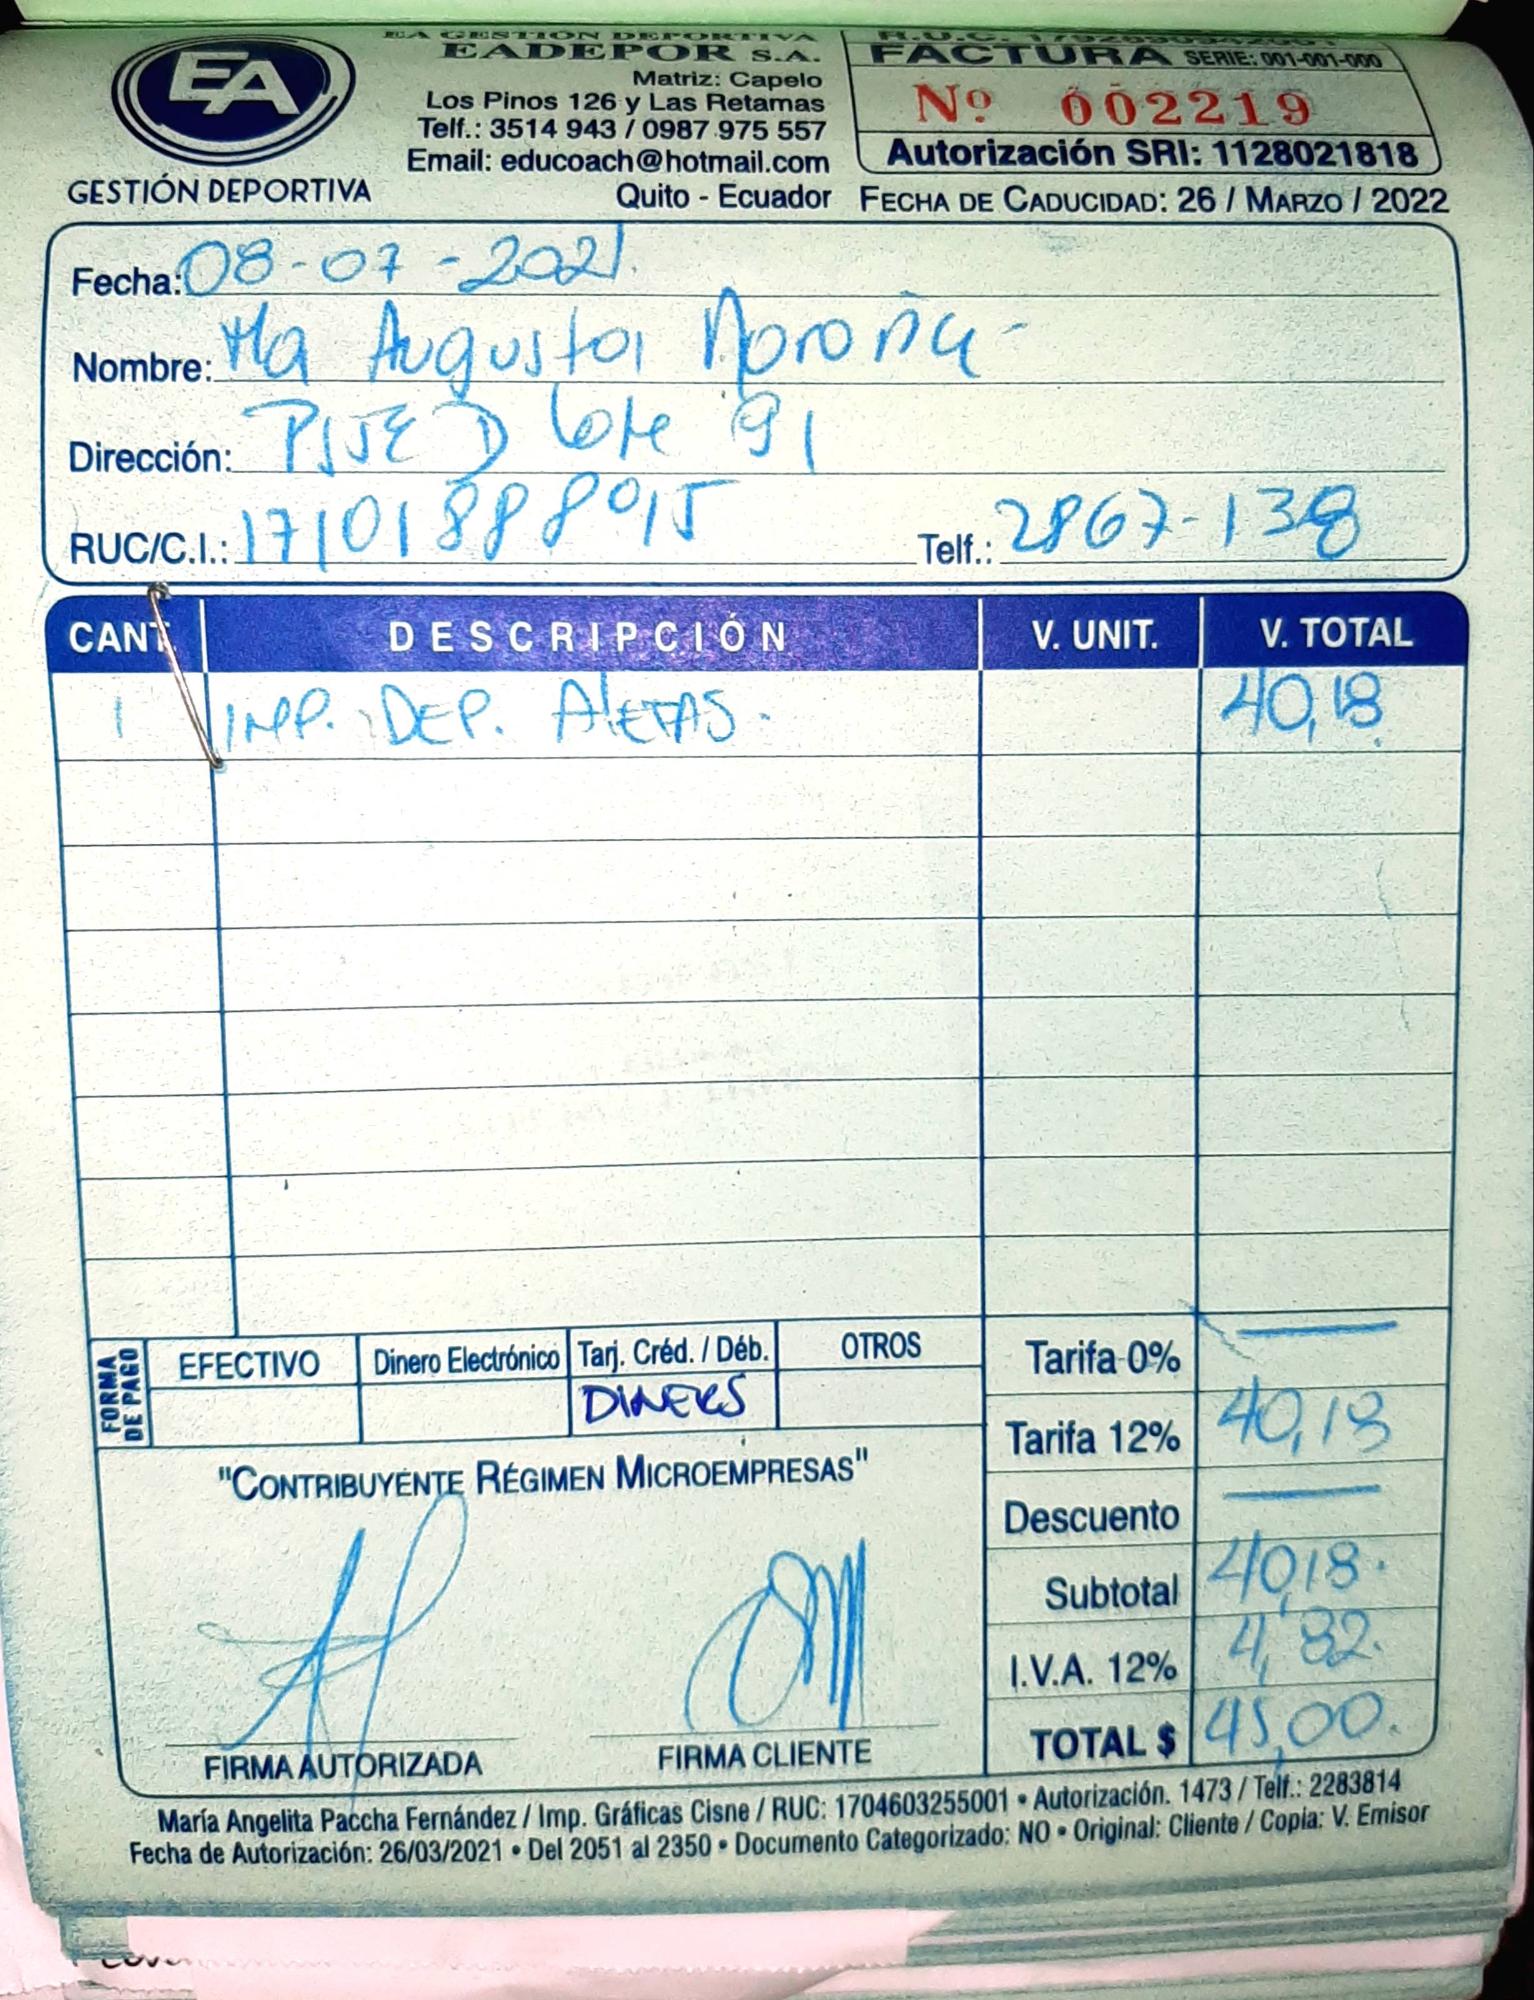 EA GESTIÓN DEPORTIVA
EADEPOR S.A.
Matriz: Capelo
Los Pinos 126 y Las Retamas
Telf.: 3514 943 / 0987 975 557
Email: educoach@hotmail.com
Quito - Ecuador
EA
GESTIÓN DEPORTIVA
R.U.C.
FACTURA SERIE: 001-001-000
Nº 002219
Autorización SRI: 1128021818
FECHA DE CADUCIDAD: 26 / MARZO / 2022
Fecha: 08-07-2021.
Nombre: Ma Augusta Noroña
Dirección: PSJE D lote 91
RUC/C.I.: Telf.: 2867-138
CANT. DESCRIPCIÓN V. UNIT. V. TOTAL
1 IMP. DEP. AlETAS. 40,18
FORMA DE PAGO
EFECTIVO Dinero Electrónico Tarj. Créd. / Déb. OTROS
DINERS
Tarifa 0% —
Tarifa 12% 40,18
Descuento —
Subtotal 40,18.
I.V.A. 12% 4,82.
TOTAL $ 45,00.
"CONTRIBUYENTE RÉGIMEN MICROEMPRESAS"
FIRMA AUTORIZADA FIRMA CLIENTE
María Angelita Paccha Fernández / Imp. Gráficas Cisne / RUC: 1704603255001 • Autorización. 1473 / Telf.: 2283814
Fecha de Autorización: 26/03/2021 • Del 2051 al 2350 • Documento Categorizado: NO • Original: Cliente / Copia: V. Emisor